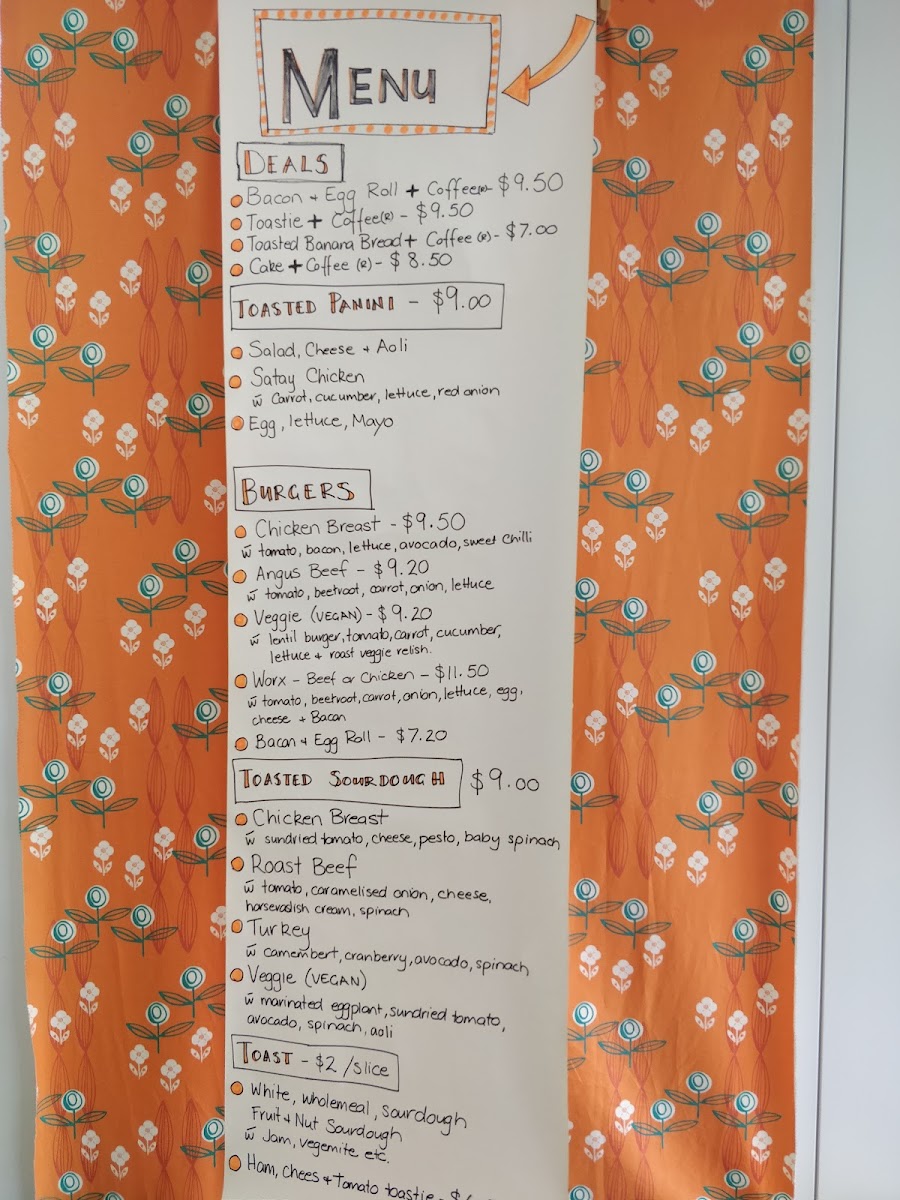 MENU
DEALS
Bacon + Egg Roll + Coffee(R)- $9.50
Toastie + Coffee(R) - $9.50
Toasted Banana Bread + Coffee (R) - $7.00
Cake + Coffee (R) - $8.50
TOASTED PANINI - $9.00
Salad, Cheese + Aoli
Satay Chicken
w̄ Carrot, cucumber, lettuce, red onion
Egg, lettuce, Mayo
BURGERS
Chicken Breast - $9.50
w̄ tomato, bacon, lettuce, avocado, sweet chilli
Angus Beef - $9.20
w̄ tomato, beetroot, carrot, onion, lettuce
Veggie (VEGAN) - $9.20
w̄ lentil burger, tomato, carrot, cucumber,
lettuce + roast veggie relish.
Worx - Beef or Chicken - $11.50
w̄ tomato, beetroot, carrot, onion, lettuce, egg,
cheese + Bacon
Bacon + Egg Roll - $7.20
TOASTED SOURDOUGH $9.00
Chicken Breast
w̄ sundried tomato, cheese, pesto, baby spinach
Roast Beef
w̄ tomato, caramelised onion, cheese,
horseradish cream, spinach
Turkey
w̄ camembert, cranberry, avocado, spinach
Veggie (VEGAN)
w̄ marinated eggplant, sundried tomato,
avocado, spinach, aoli
TOAST - $2 /slice
White, wholemeal, sourdough
Fruit + Nut Sourdough
w̄ Jam, vegemite etc.
Ham, chees + Tomato toastie - $